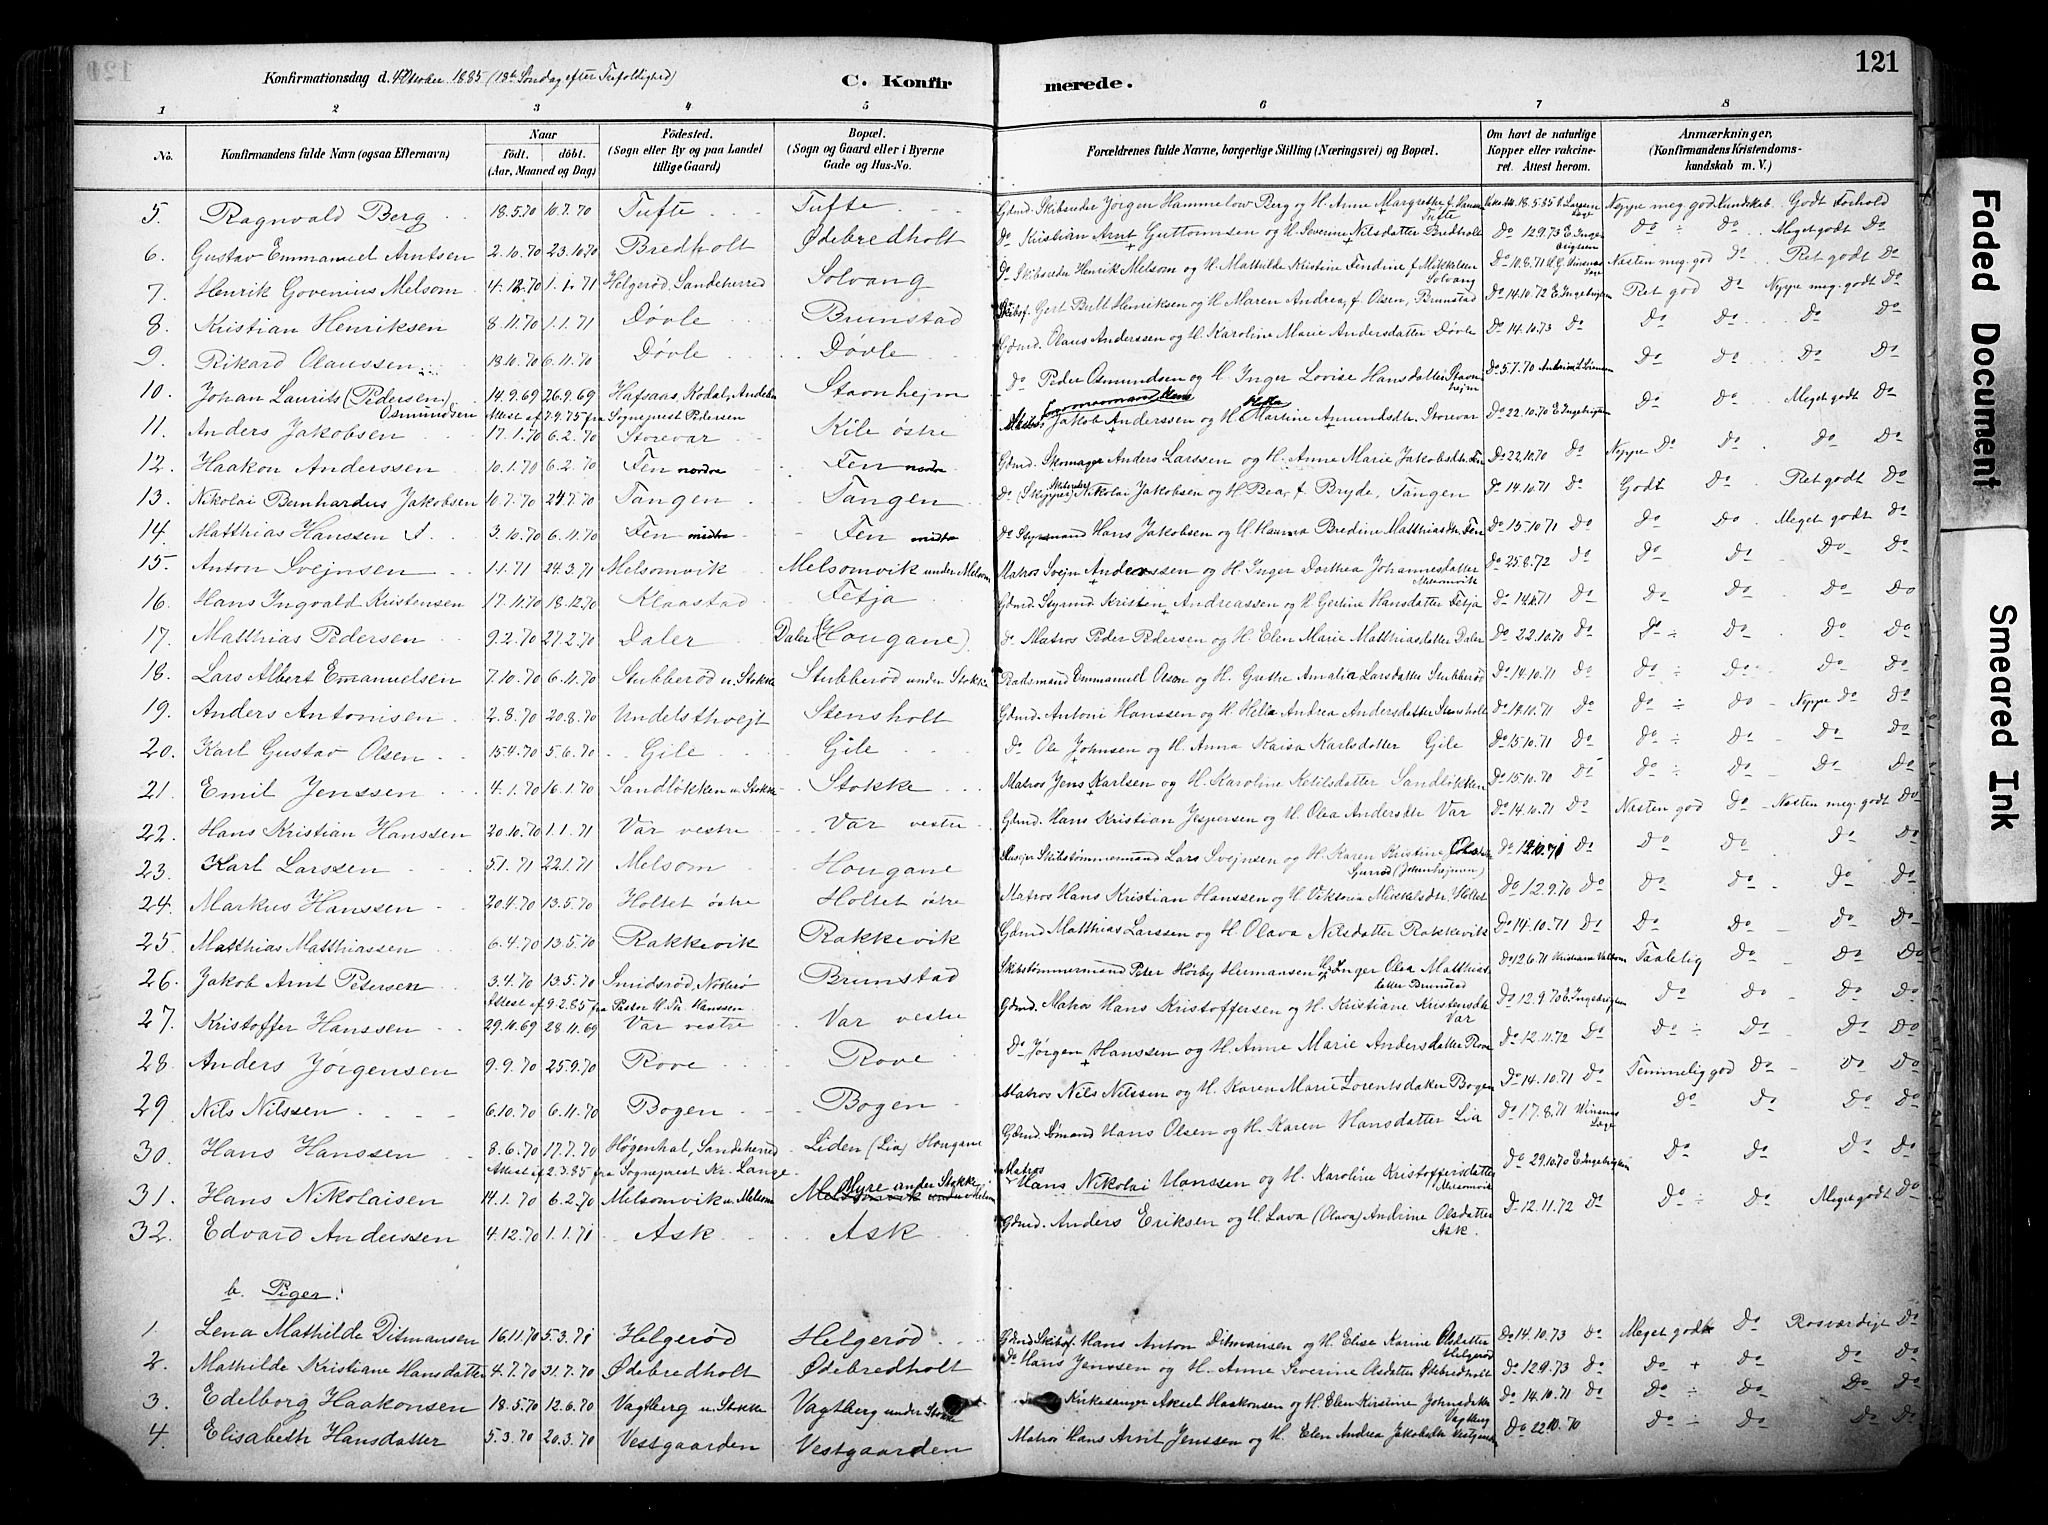 121
Konfirmationsdag d. 4 Oktober 1885 (18de Søndag efter Trefoldighed)
C. Konfirmerede.
1 2 3 4 5 6 7 8
No.
Konfirmandens fulde Navn (ogsaa Efternavn)
Naar
født. døbt.
(Aar, Maaned og Dag)
Födested.
(Sogn eller By og paa Landet
tillige Gaard)
Bopæl.
(Sogn og Gaard eller i Byerne
Gade og Hus-No.
Forældrenes fulde Navne, borgerlige Stilling (Næringsvei) og Bopæl.
Om havt de naturlige
Kopper eller vakcine-
ret. Attest herom.
Anmærkninger,
(Konfirmandens Kristendoms-
kundskab m. V.)
5. Ragnvald Berg 18.5.70 10.7.70 Tufte Tufte Gdmd. Skibsreder Jörgen Hammelow Berg og H. Anne Margrethe f. Hansen Tufte Nyppe meg. god Kundskab. Godt Forhold
6. Gustav Emmanuel Arntsen 2.10.70 23.10.70 Bredholt Ødebredholt Do Kristian Arnt Guttormsen og H. Severine Nilsdatter Bredholt Do 12.9.73 E. Ingebrigtsen Do ÷ Do Meget godt Do
7. Henrik Govenius Melsom 4.12.70 1.1.71 Helgerød, Sandeherred Solvang Do Skibsreder Henrik Melsom og H. Mathilde Kristine Fendine f. Mikkelsen Solvang Do 10.8.71 Næsten meg. god Do Ret godt Do
8. Kristian Henriksen 8.11.70 1.1.71 Døvle Brunstad Skibsf. Gert Bull Henriksen og H. Maren Andrea f. Olsen, Brunstad Do 14.10.72 E. Ingebrigtsen Ret god Do Nyppe meg. godt Do
9. Rikard Olaussen 18.10.70 6.11.70 Døvle Døvle Gdmd. Olaus Anderssen og H. Karoline Marie Andersdatter Døvle Do 14.10.73 Do Do Do Do Do
10. Johan Laurits (Pedersen) Osmundsen 14.9.69 26.9.69 Hafsaas, Kodal, Andebu Stavnhejm Do Peder Osmundsen og H. Inger Lovise Hansdatter Stavnhejm Do 5.7.70 Do Do Do Do
Attest af 7.9.75 fra Sogneprest Pedersen
11. Anders Jakobsen 17.1.70 6.2.70 Storevar Kile østre Jakob Anderssen og H. Martine Amundsdtr. Storevar Do 22.10.70 E. Ingebrigtsen Do Do Meget godt Do
12. Haakon Anderssen 10.1.70 6.2.70 Fen nordre Fen nordre Gdmd. Skomager Anders Larssen og H. Anne Marie Jakobsdtr. Fen Do 22.10.70 Do Nyppe Do Do Do Do
13. Nikolai Bernhardus Jakobsen 10.7.70 24.7.70 Tangen Tangen Do (Skipper) Nikolai Jakobsen og H. Bea, f. Bryde, Tangen Do 14.10.71 Do Godt Do Ret godt Do
14. Matthias Hanssen 3.10.70 6.11.70 Fen midtre Fen midtre Do Styrmand Hans Jakobsen og H. Hanna Bredine Matthiasdtr. Fen Do 15.10.71 Do Do Do Meget godt Do
15. Anton Svejnsen 1.1.71 24.3.71 Melsomvik Melsomvik under Melsom Matros Svejn Anderssen og H. Inger Dorthea Johannesdatter Melsomvik Do 25.8.72 Do Do Do Do Do
16. Hans Ingvald Kristensen 17.11.70 18.12.70 Klaastad Fetja Gdmd. Styrmd Kristen Andreassen og H. Gertine Hansdatter Fetja Do Do Do Do Do
17. Matthias Pedersen 9.2.70 27.2.70 Daler Daler (Hougane) Do Matros Peder Pedersen og H. Elen Marie Matthiasdatter Daler Do 22.10.70 Do Do ÷ Do Do Do
18. Lars Albert Emanuelsen 7.10.70 6.11.70 Stubberød u. Stokke Stubberød under Stokke Rademand Emmanuel Olsen og H. Grethe Amalia Larsdatter Stubberød Do 14.10.71 Do Do ÷ Do Do Do
19. Anders Antonisen 2.8.70 20.8.70 Undelsthvejt Stensholt Gdmd. Antoni Hanssen og H. Hella Andrea Andersdatter Stensholt Do 14.10.71 Do Do ÷ Do Nyppe Do Do
20. Karl Gustav Olsen 15.4.70 5.6.70 Gile Gile Do Ole Johnsen og H. Anna Kaisa Karlsdatter Gile Do 15.10.71 Do Do ÷ Do Do Do
21. Emil Jenssen 4.1.70 16.1.70 Sandløkken u. Stokke Stokke Matros Jens Karlsen og H. Karoline Ketilsdatter Sandløkken Do 15.10.70 Do Do ÷ Do Do Do
22. Hans Kristian Hanssen 20.10.70 1.1.71 Var vestre Var vestre Gdmd. Hans Kristian Jespersen og H. Olea Andersdtr Var Do 14.10.71 Do Næsten god Do Næsten meg. godt Do
23. Karl Larssen 5.1.71 22.1.71 Melsom Hougane Husejer Skibstømmermand Lars Svejnsen og H. Karen Kristine Do Do Do Do Do Do
24. Markus Hanssen 20.4.70 13.5.70 Holtet østre Holtet østre Matros Hans Kristian Hanssen og H. Viktoria Mikkelsdtr. Holtet Do 12.9.70 Do Do Do Do Do
25. Matthias Matthiassen 6.4.70 13.5.70 Rakkevik Rakkevik Gdmd Matthias Larssen og H. Olava Nilsdatter Rakkevik Do 14.10.71 Do Do Do Do Do
26. Jakob Arnt Petersen 3.4.70 13.5.70 Smidsrød, Nøtterø Brunstad Skibstømmermand Peter Hörby Hermansen H. Inger Olea Matthiasdatter Brunstad Do 12.6.71 Taalelig Do Do Do
Attest af 9.2.85 fra Pastor H. Th. Hanssen
27. Kristoffer Hanssen 29.10.69 28.11.69 Var vestre Var vestre Gdmd. Matros Hans Kristoffersen og H. Kristiane Kristensdtr Var Do 12.9.70 E. Ingebrigtsen Do Do Do Do
28. Anders Jörgensen 9.9.70 25.9.70 Rove Rove Do Jörgen Hanssen og H. Anne Marie Andersdatter Rove Do 12.11.72 Do Do ÷ Do Do Do
29. Nils Nilssen 6.10.70 6.11.70 Bogen Bogen Matros Nils Nilssen og H. Karen Marie Lorentsdatter Bogen Do 14.10.71 Do Temmelig god Do Do Do
30. Hans Hanssen 8.6.70 17.7.70 Høgenhal, Sandeherred Liden (Lia) Hougane Gdmd. Sömand Hans Olsen og H. Karen Hansdatter Lia Do 17.8.71 Do Do Do Do
Attest af 2.3.85 fra Sogneprest Kr. Lange
31. Hans Nikolaisen 14.1.70 6.2.70 Melsomvik u. Melsom Myre under Stokke Melsomvik under Melsom Matros Hans Nikolai Hanssen og H. Karoline Kristoffersdatter Melsomvik Do 29.10.70 E. Ingebrigtsen Do Do Do Do
32. Edvard Anderssen 4.12.70 1.1.71 Ask Ask Gdmd. Anders Eriksen og H. Lava (Olava) Andrine Olsdatter Ask. Do 12.11.72 Do Do ÷ Do Meget godt Do
b. Piger.
1. Lena Mathilde Ditmansen 16.11.70 5.3.71 Helgerød Helgerød Gdmd Skibsf. Hans Anton Ditmansen og H. Elise Karine Olsdatter Helgerød Do 14.10.73 Do Meget godt Do Rosværdigt Do
2. Mathilde Kristiane Hansdatter 4.7.70 31.7.70 Ødebredholt Ødebredholt Do Hans Jenssen og H. Anne Severine Olsdatter Ødebredholt Do 12.9.73 Do Do + Do Do Do
3. Edelborg Haakonsen 18.5.70 12.6.70 Vagtberg u. Stokke Vagtberg under Stokke Kirkesanger Aksel Haakonsen og H. Elen Kirstine Johnsdatter Vagtberg Do 14.10.71 Do Do ÷ Do Do Do
4. Elisabeth Hansdatter 5.3.70 20.3.70 Vestgaarden Vestgaarden Matros Hans Arvit Jenssen og H. Elen Andrea Jakobsdtr Vestgaarden Do 22.10.70 Do ÷ Do Do Do
Faded Document
Smeared Ink